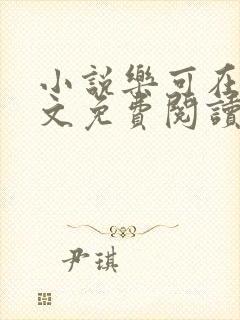 小説樂可在
文免費閱讀
尹琪